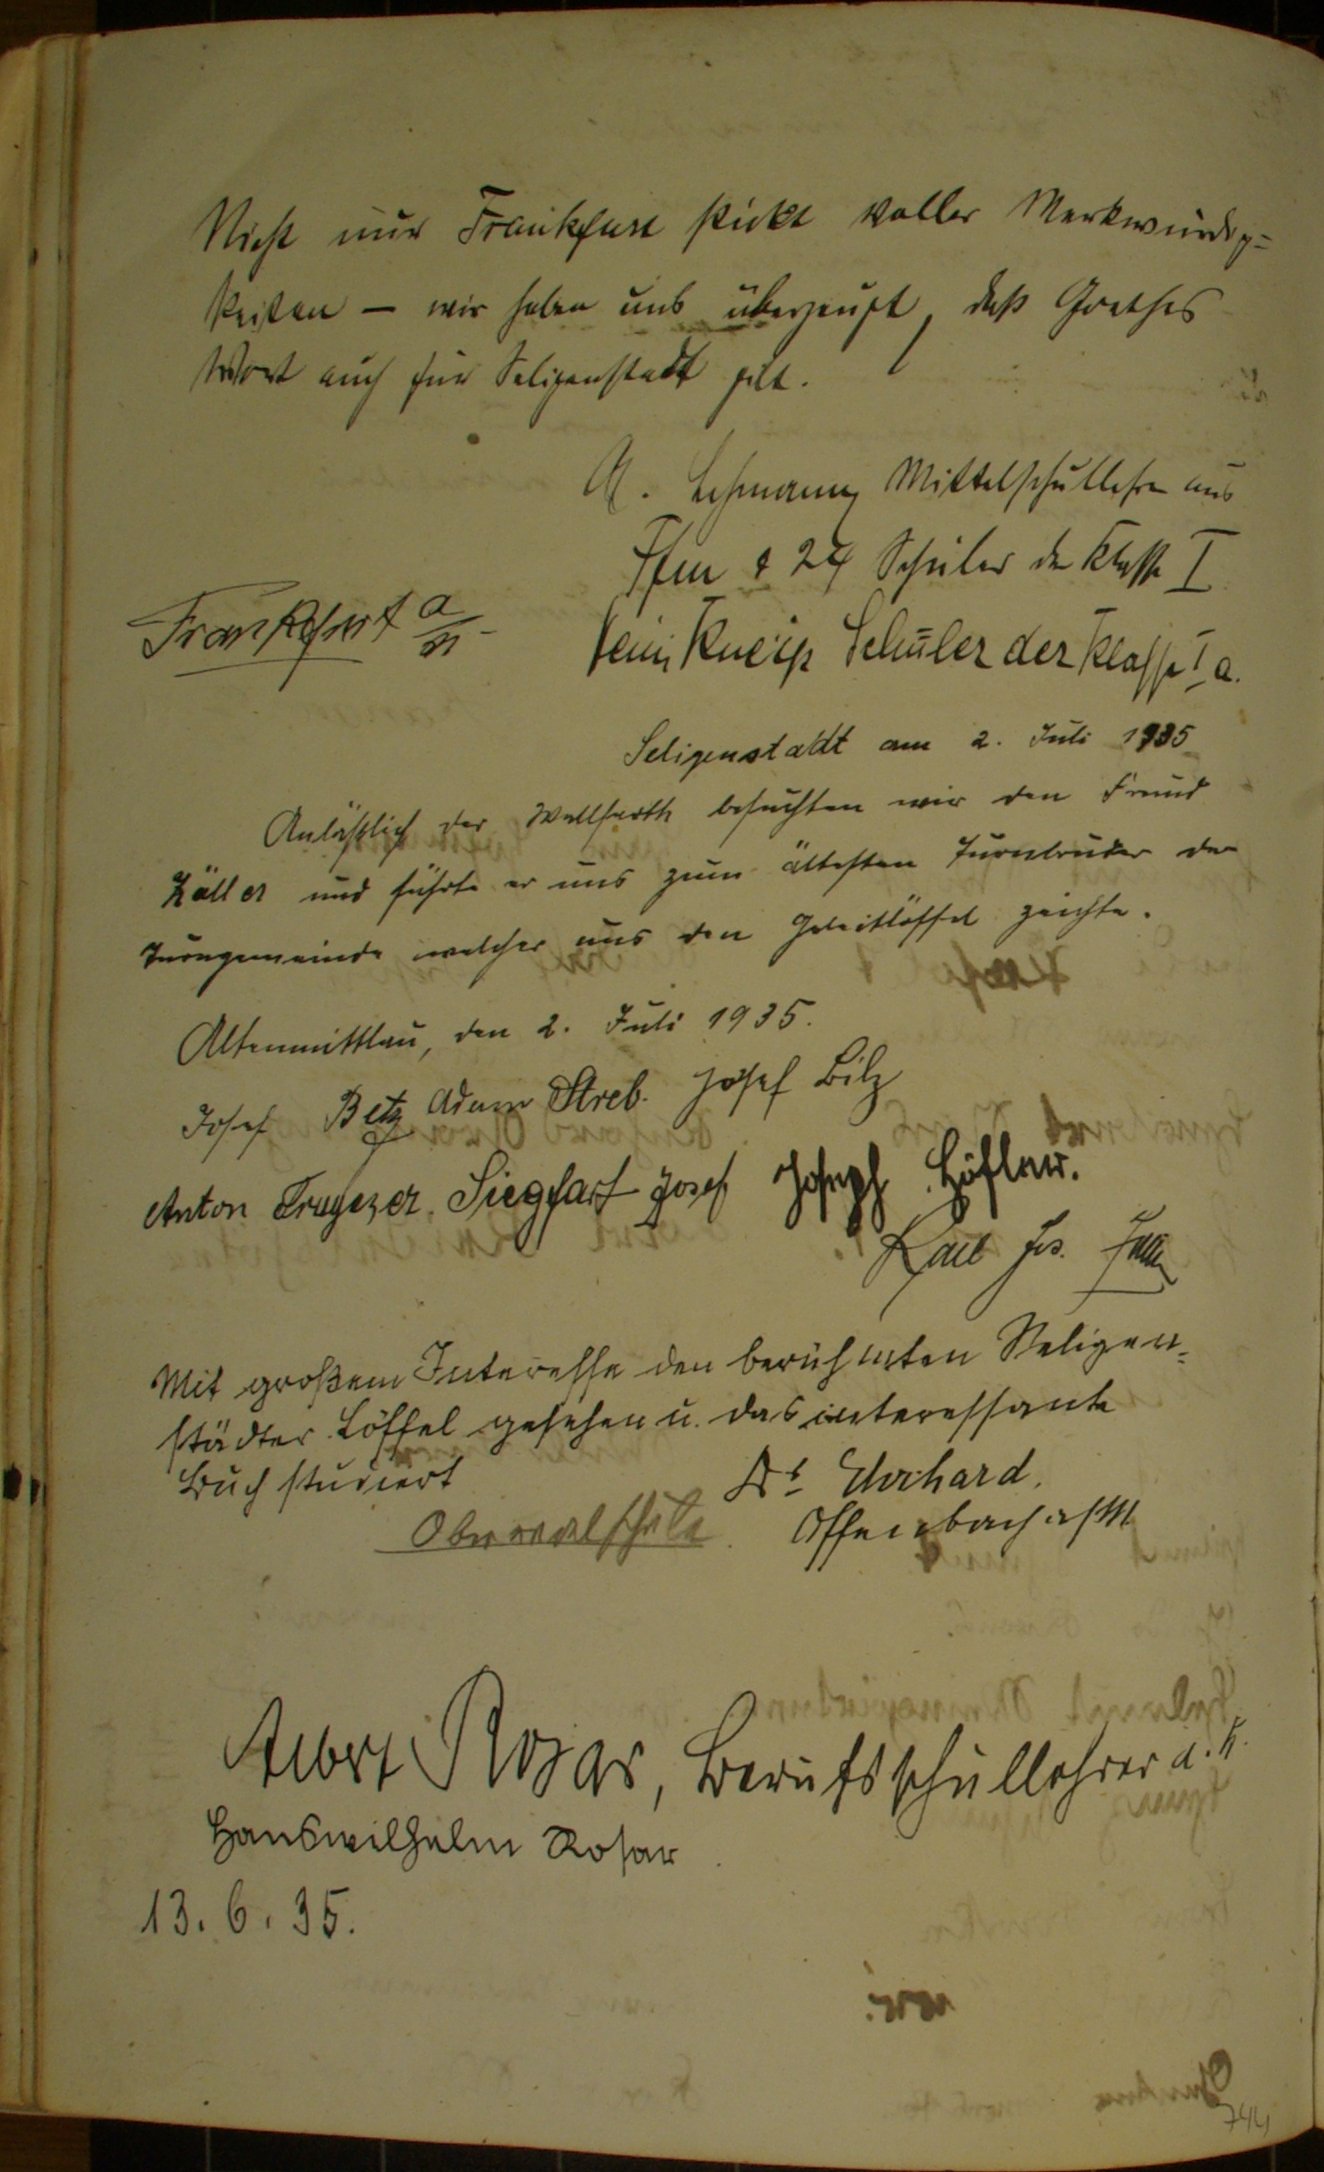 Nicht nur Frankfurt stickt voller Merkwürdig=
keiten — wir haben uns überzeugt, daß Goethes
Wort auch für Seligenstadt gilt.
A. Lehmann, Mittelschullehrer aus
Ffm & 24 Schüler der Klasse I
Frankfurt a/M
Heini Kneip Schüler der Klasse I a.
Seligenstadt am 2. Juli 1935
Anläßlich der Wallfarth besuchten wir den Freund
Zöller und führte er uns zum ältesten Turnbruder der
Turngemeinde welcher uns den Geleitlöffel zeichte.
Altenmittlau, den 2. Juli 1935.
Josef Betz Adam Streb. Josef Bilz
Anton Trageser. Siegfart Josef Joseph Höfler.
Karl Jos.
Mit großem Interesse den berühmten Seligen-
städter Löffel gesehen u. das interessante
Buch studiert
Dr. Eberhard.
Oberrealschule Offenbach a/M
Albert Rosar, Berufsschullehrer
Hanswilhelm Rosar
13. 6. 35.
744